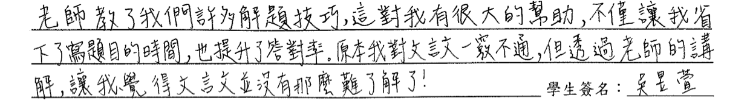 老師教了我們許多解題技巧,這對我有很大的幫助,不僅讓我省
下了寫題目的時間,也提升了答對率。原本我對文言文一竅不通,但透過老師的講
解,讓我覺得文言文並沒有那麼難了解了! 學生簽名:吳昱萱